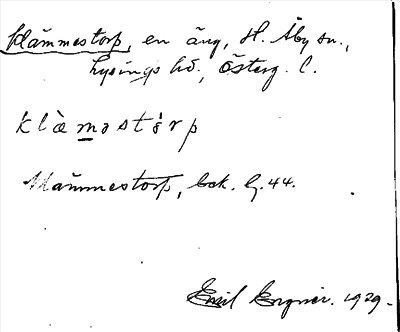 Klämmestorp, en äng, St. Åby sn.,
Lysings hd., Österg. l.
klæ̀məstórp
Klämmestorp, bek. G. 44.
Emil Ergner. 1929.